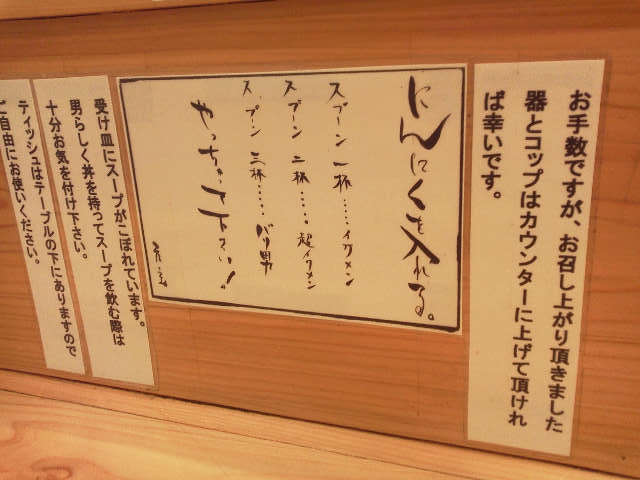 お手数ですが、お召し上がり頂きました
器とコップはカウンターに上げて頂けれ
ば幸いです。
にんにくを入れる。
スプーン一杯……イケメン
スプーン二杯……超イケメン
スプーン三杯……バリ男
やっちゃて下さい!
受け皿にスープがこぼれています。
男らしく丼を持ってスープを飲む際は
十分お気を付け下さい。
ティッシュはテーブルの下にありますので
ご自由にお使いください。